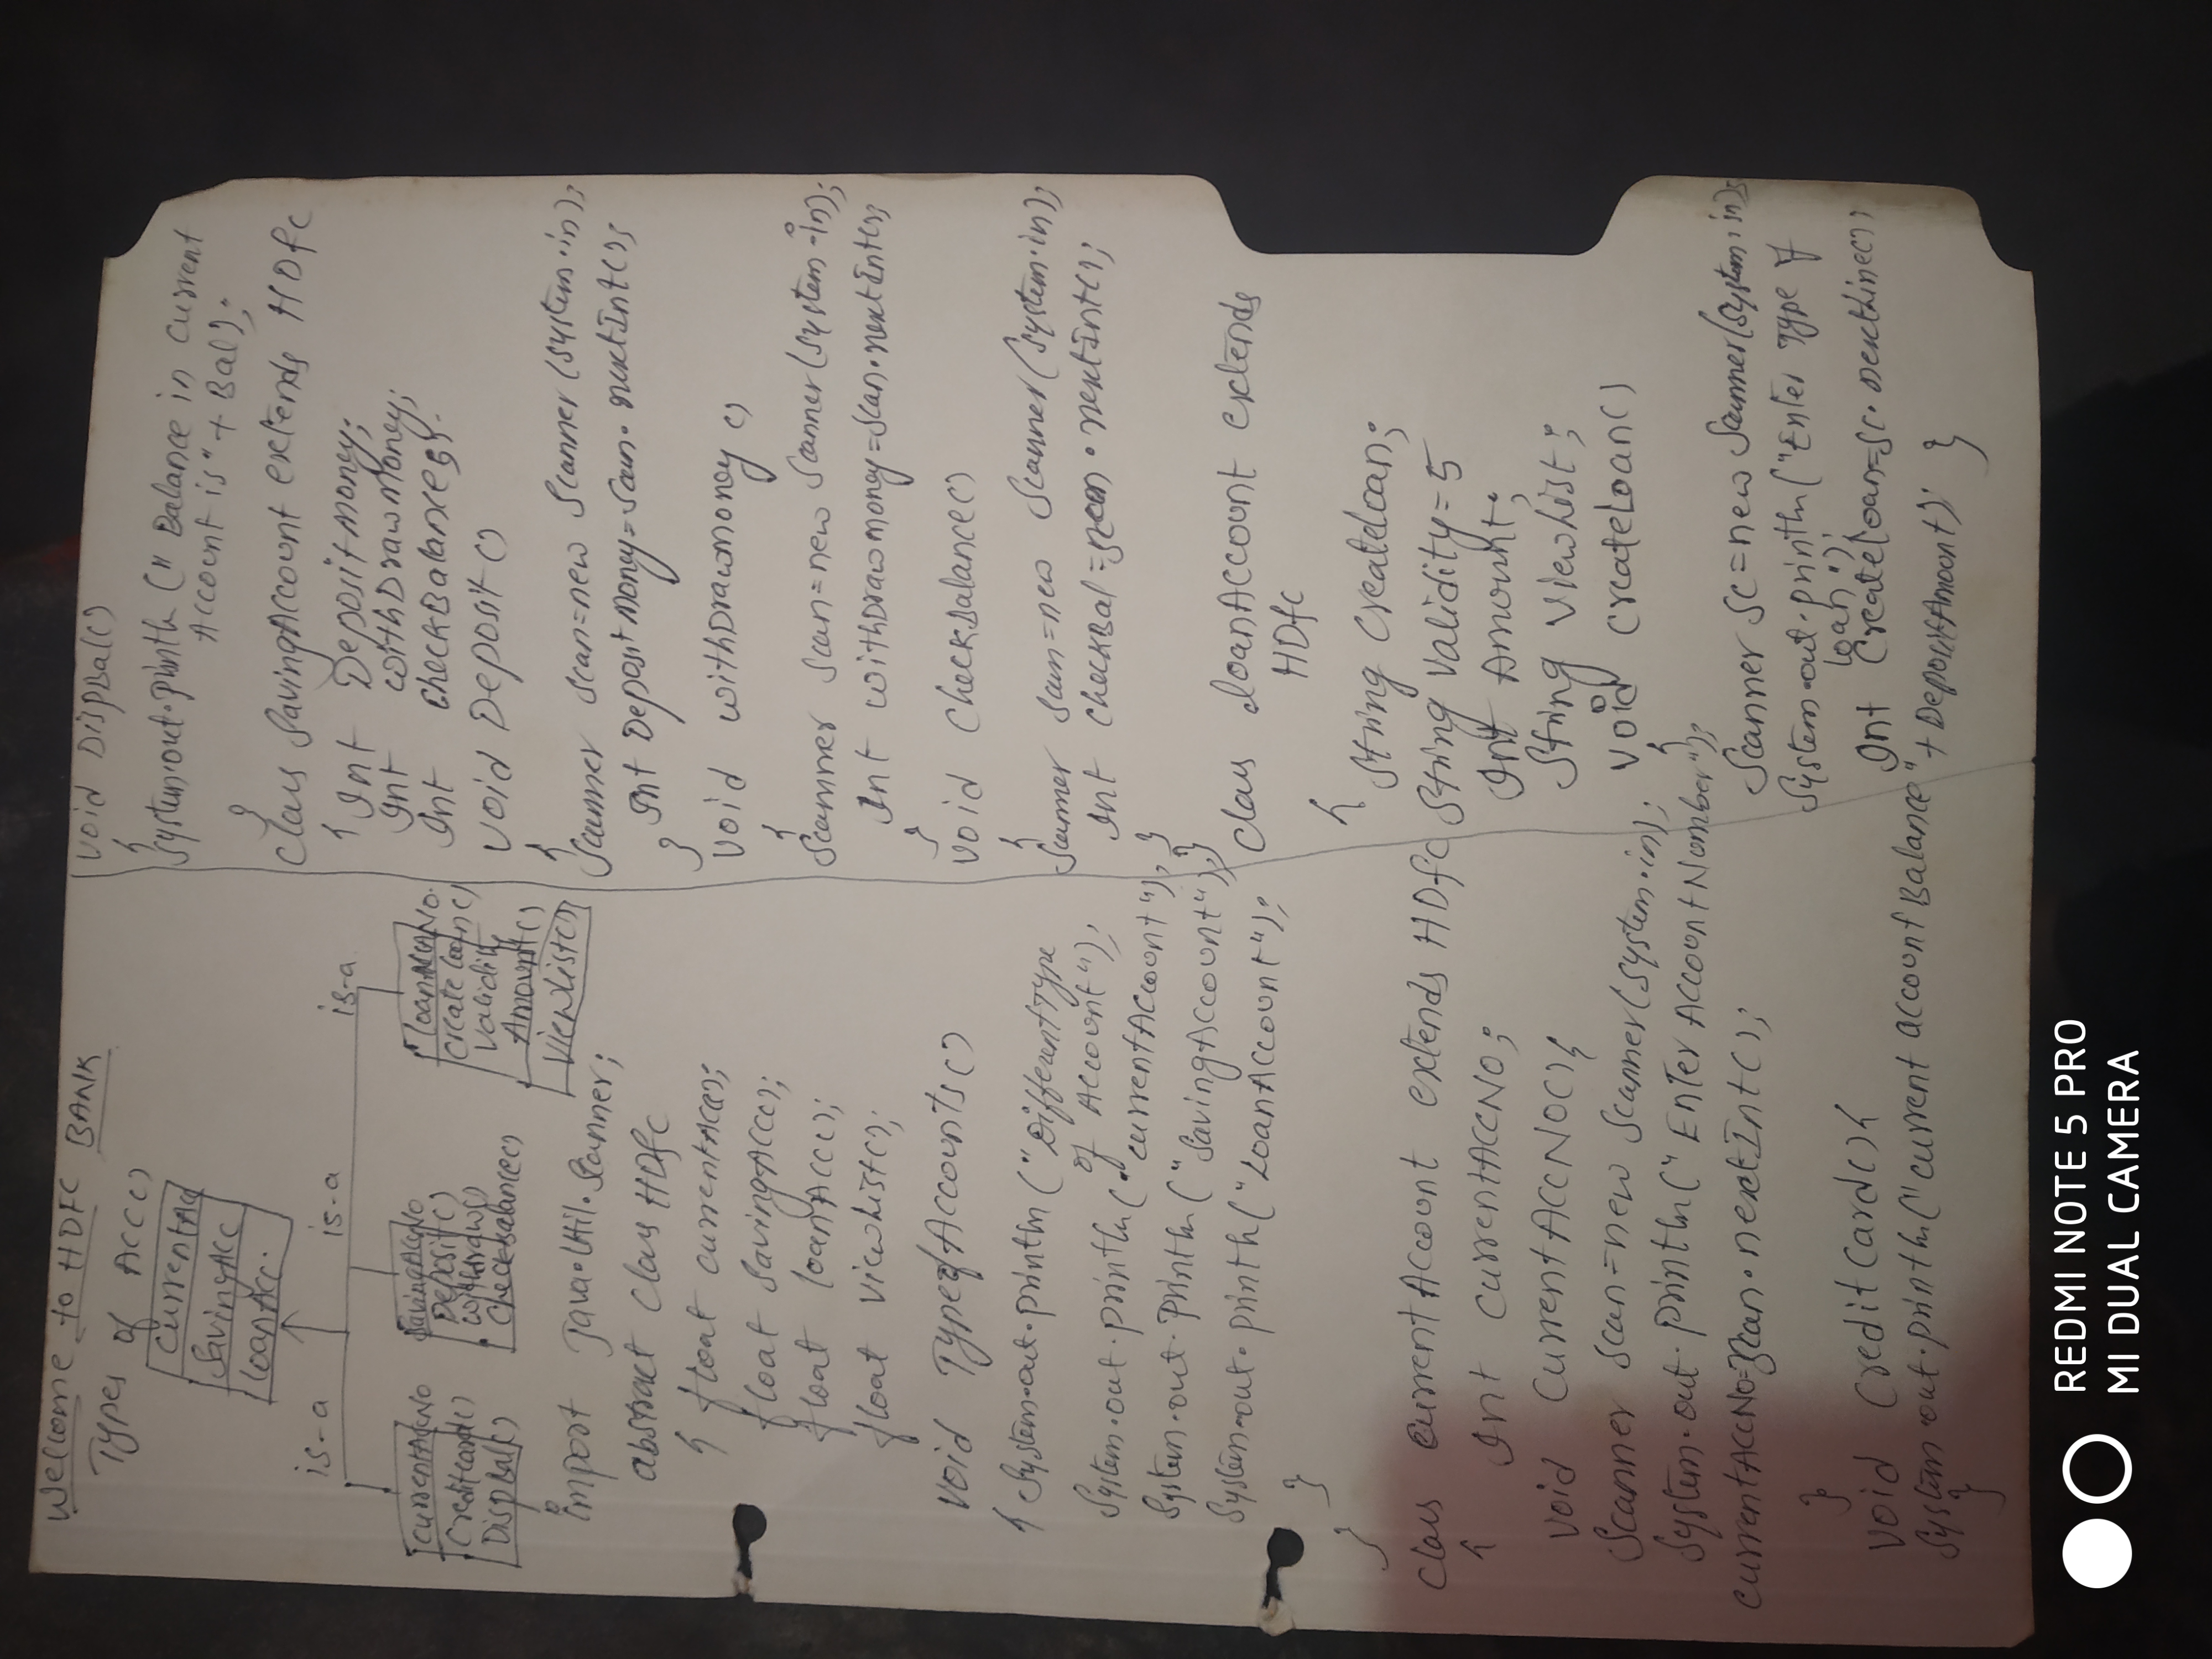 Wellcome to HDFC BANK
Types of Acc()
CurrentAcc
SavingAcc
loanAcc.
is-a is-a is-a
CurrentAccNo
Creditcard()
DispBal()
SavingAccNo
Deposit()
withdraw()
CheckBalance()
loanAccNo.
Create loan()
Validity
Amount()
ViewList()
import Java.Util.Scanner;
abstract Class HDfc
{ float currentAcc();
float SavingAcc();
float loanAcc();
float ViewList();
void TypeofAccounts()
{ System.out.println ("DifferentType
of Account");
System.out.println ("currentAccount");
System.out.println ("SavingAccount");
System.out.println ("LoanAccount");
}
}
Class CurrentAccount extends HDfc
{ Int CurrentAccNo;
void CurrentAccNo(){
Scanner scan=new Scanner(System.in);
System.out.println("Enter AccountNumber");
currentAccNo=scan.nextInt();
}
void CreditCard(){
System.out.println("current account Balance"+DepositAmount);
}
void DispBal()
{
System.out.println (" Balance in current
Account is"+Bal);
}
Class SavingAccount extends HDfc
{ Int DepositMoney;
Int withDrawMoney;
Int CheckBalance;
void Deposit()
{
Scanner scan=new Scanner(System.in);
Int DepositMoney=Scan.nextInt();
}
void withDrawmoney()
{
Scanner scan=new Scanner(System.in);
Int withDrawmoney=scan.nextInt();
}
void CheckBalance()
{
Scanner scan=new Scanner(System.in);
Int CheckBal=scan.nextInt();
}
}
Class loanAccount extends
HDfc
{
String Createloan;
String Validity=5
Int Amount;
String ViewList;
void CreateLoan()
{
Scanner Sc=new Scanner(System.in);
System.out.println("Enter Type of
loan");
Int CreateLoan=sc.nextLine();
}
REDMI NOTE 5 PRO
MI DUAL CAMERA